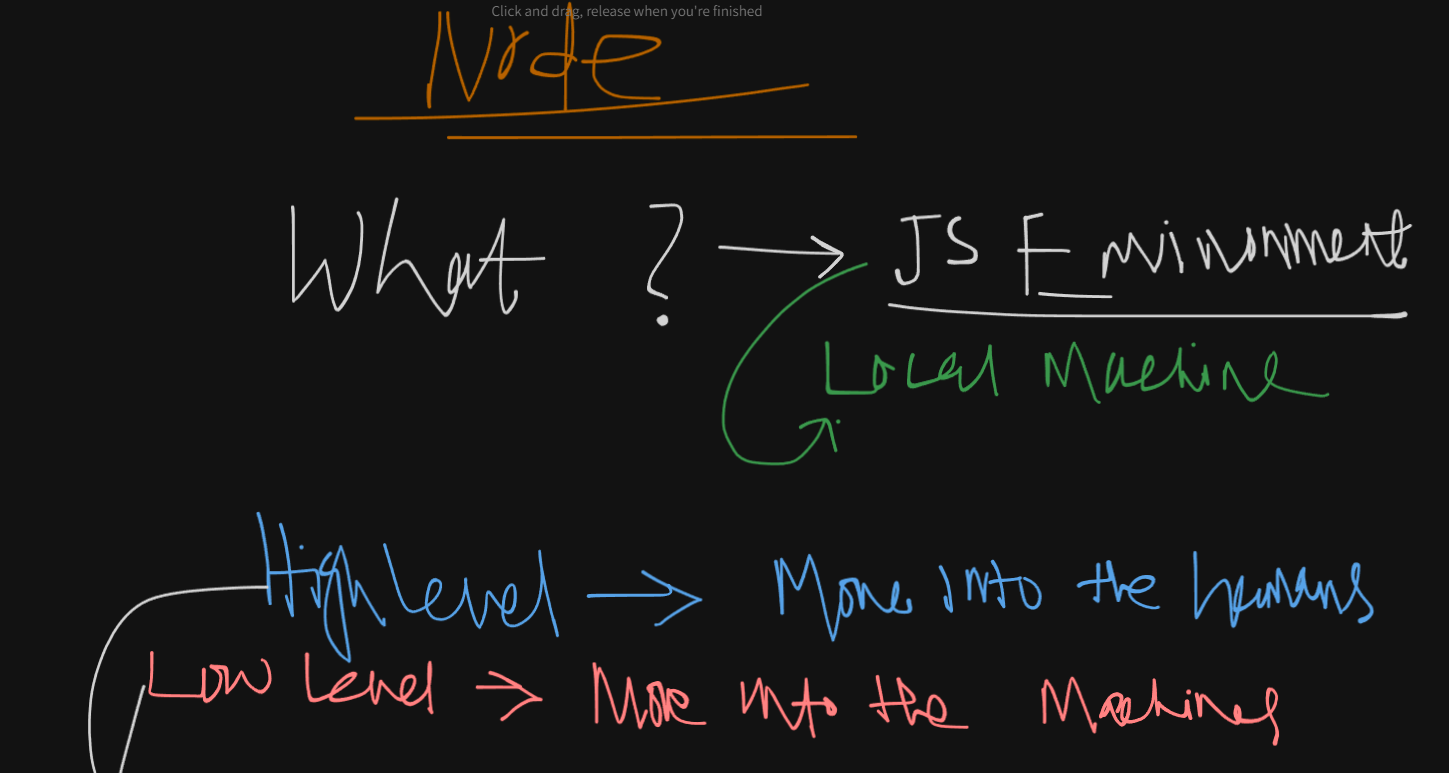 Click and drag, release when you're finished
Node
What ? → JS Environment
Local Machine
High level → More into the humans
Low level → More into the Machines